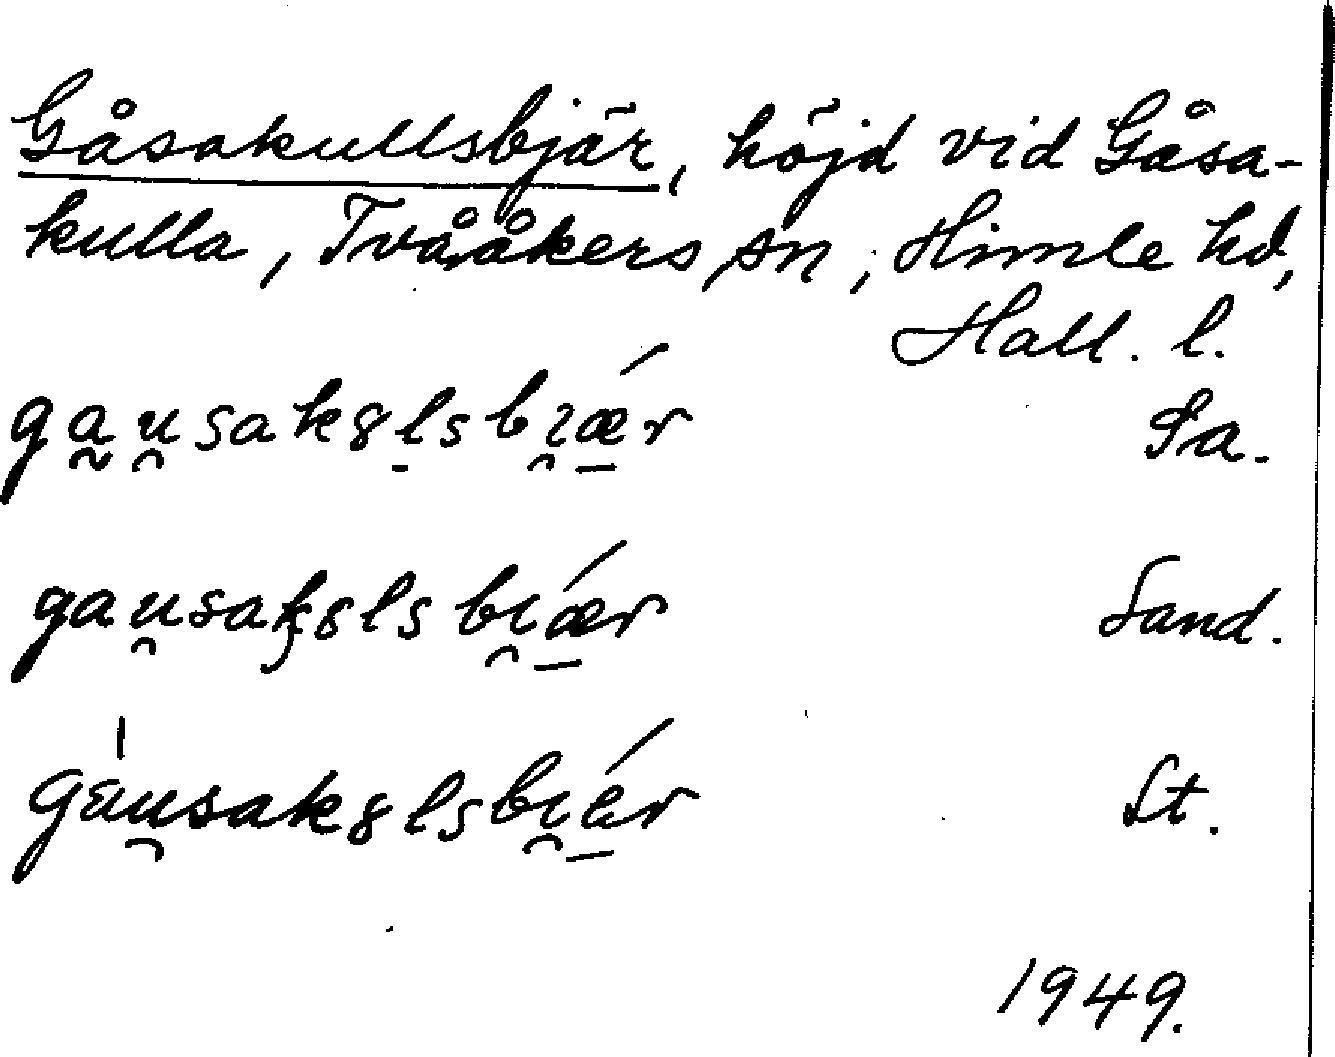 Gåsakullsbjär, höjd vid Gåsa-
kulla, Tvååkers sn, Himle hd,
Hall. l.
ga̰u̯sak8l̠sbı̯ǽ̠r Sa.
gau̯sak8lsbı̯ǽ̠r Sand.
gàu̯sak8lsbı̯é̠r St.
1949.